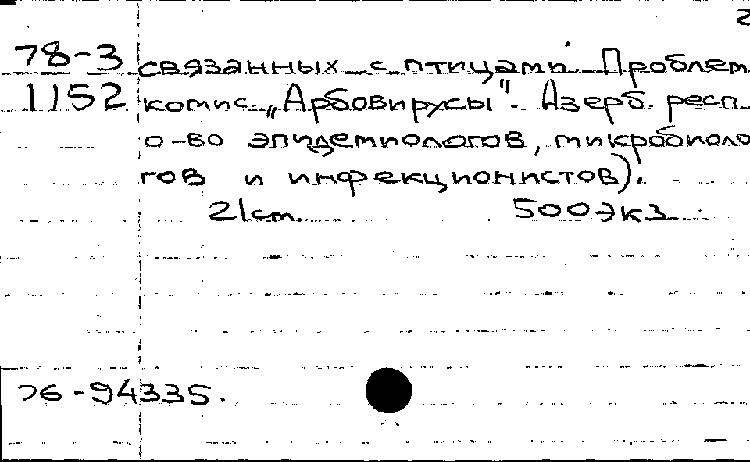 2
78-3 связанных с птицами. Проблем
1152 комис. „Арбовирусы". Азерб. респ.
о-во эпидемиологов, микробиоло
гов и инфекционистов).
21 см. 500 экз.
76-94335.